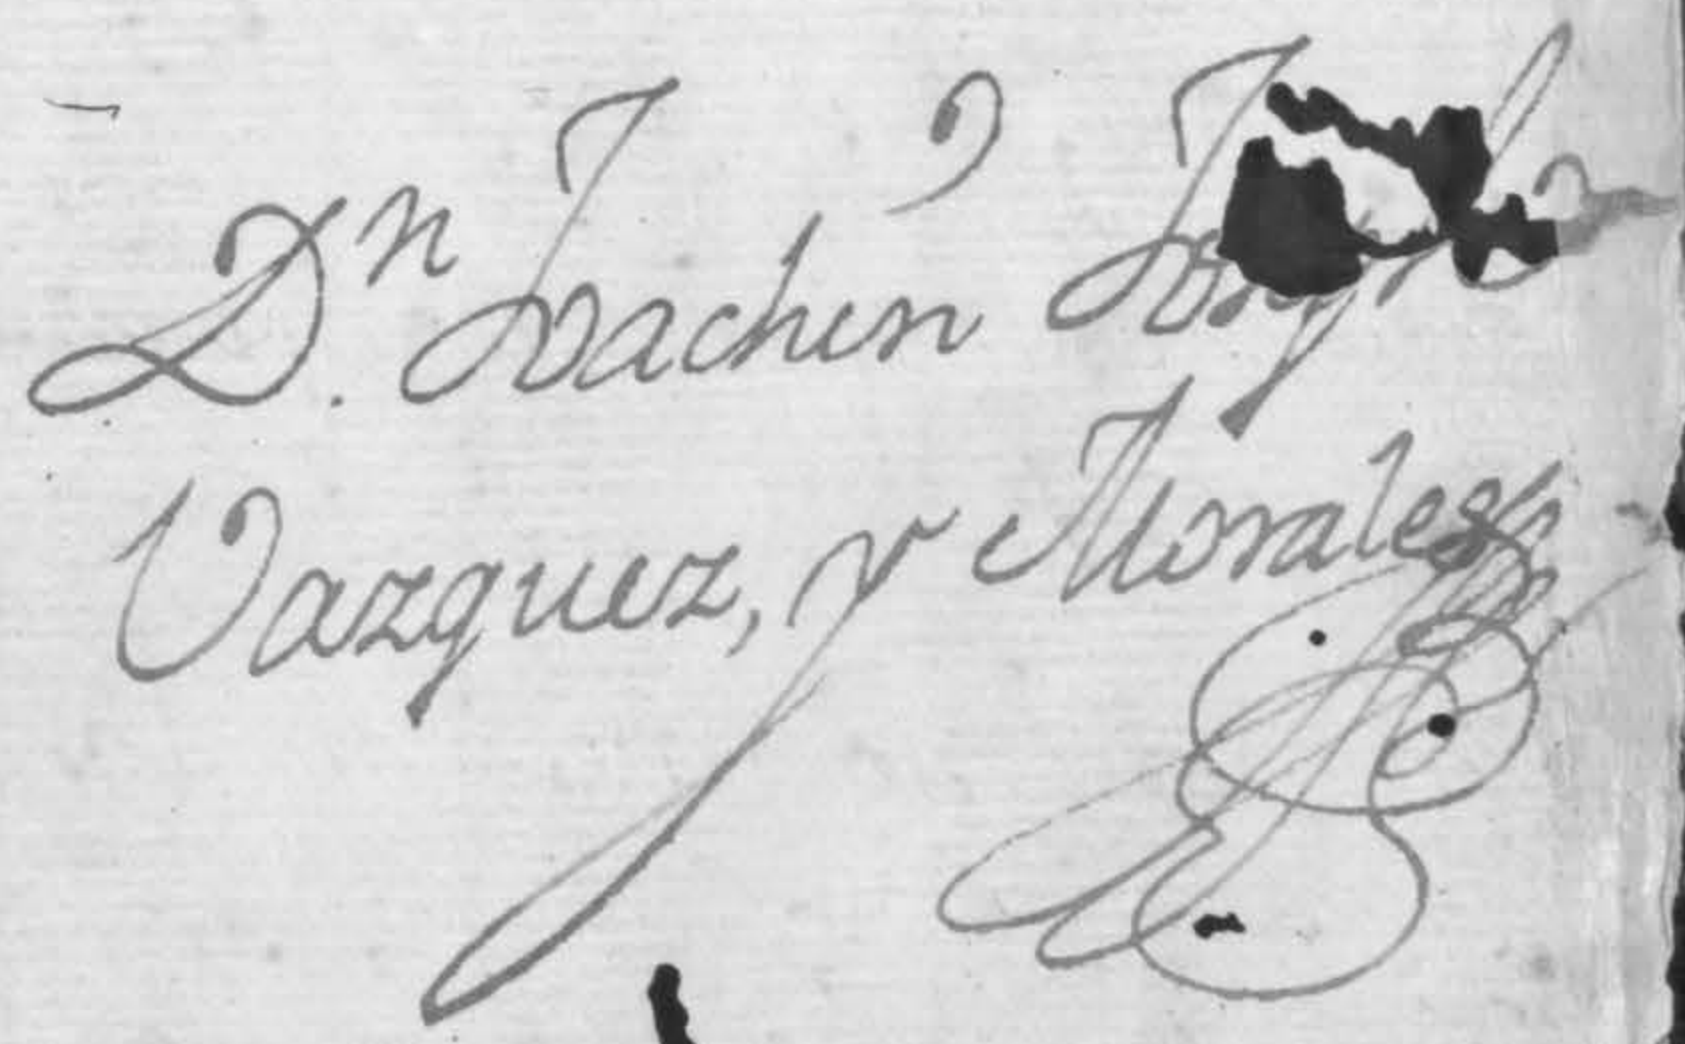 D.n Joachin Joseph
Vazquez, y Morales